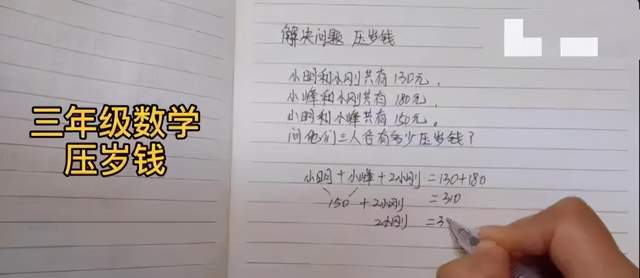 三年级数学
压岁钱
解决问题 压岁钱
小明和小刚共有130元,
小峰和小刚共有180元,
小明和小峰共有150元。
问他们三人各有多少压岁钱?
小明+小峰+2小刚=130+180
150+2小刚=310
2小刚=3